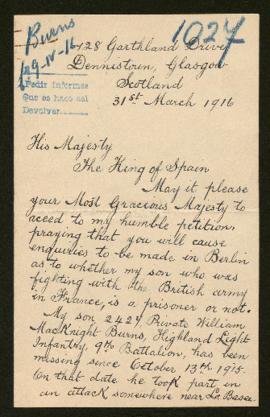 Burns
29-IV-16
1027
Pedir informes
Que se hace así
Devolver
128 Garthland Drive
Dennistoun, Glasgow
Scotland
31st March 1916
His Majesty
The King of Spain
May it please
your Most Gracious Majesty to
aceed to my humble petition,
praying that you will cause
enquiries to be made in Berlin
as to whether my son who was
fighting with the British army
in France, is a prisoner or not.
My son 2427, Private William
MacKnight Burns, Highland Light
Infantry, 9th Battalion, has been
missing since October 13th 1915.
On that date he took part in
an attack somewhere near La Basee